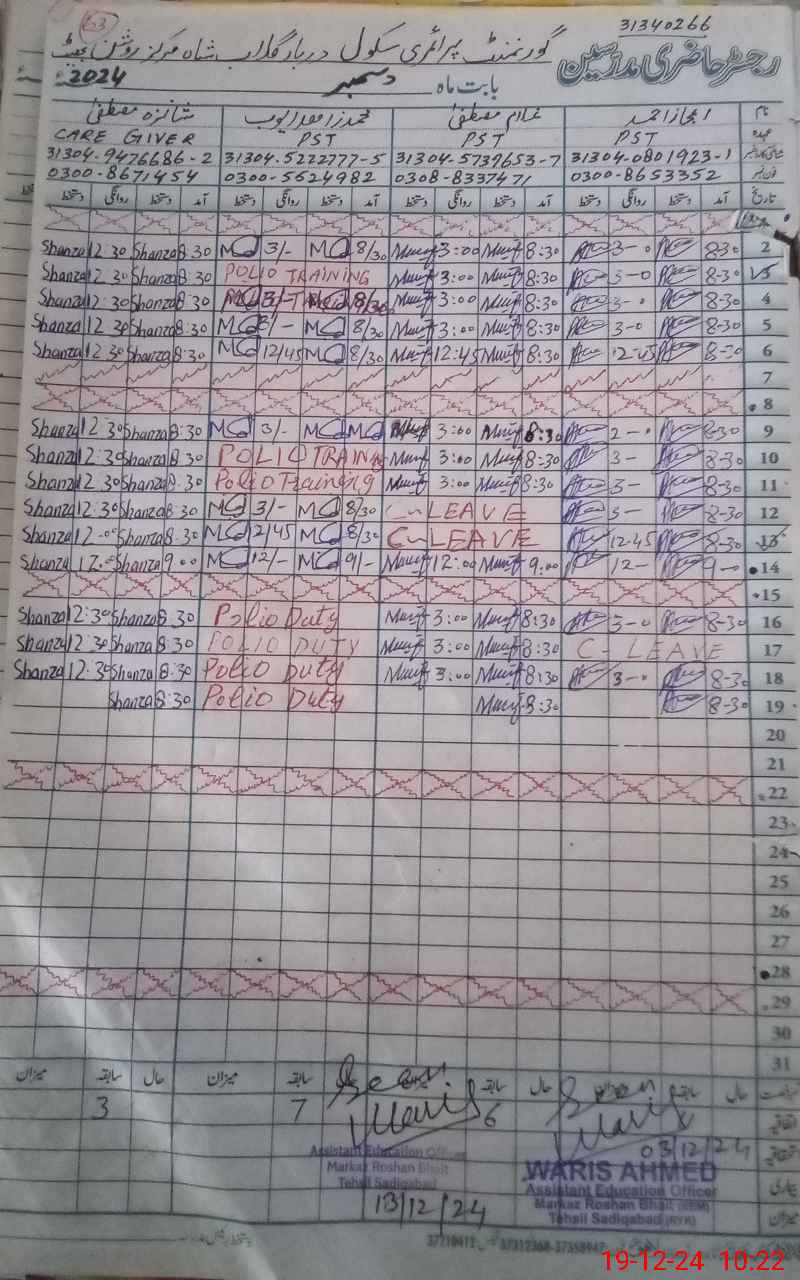 63
31340266
رجسٹر حاضری مدرسین
گورنمنٹ پرائمری سکول دربار گلاب شاہ مرکز روشن بھیٹ
بابت ماہ دسمبر 2024
نام اعجاز احمد غلام مصطفیٰ شانزہ مصطفیٰ
عہدہ PST PST PST CARE GIVER
31304-0801923-1 31304-5739653-7 31304-5222777-5 31304-9476686-2
0300-8653352 0308-8337471 0300-5624982 0300-8671454
تاریخ آمد دستخط روانگی دستخط آمد دستخط روانگی دستخط آمد دستخط روانگی دستخط آمد دستخط روانگی دستخط
Shanza 12:30 Shanza 8:30 3/- 8/30 3:00 8:30 3-0 8-30 2
Shanza 12:30 Shanza 8:30 POLIO TRAINING 3:00 8:30 3-0 8-30
Shanza 12:30 Shanza 8:30 3:00 8:30 3-0 8-30 4
Shanza 12:30 Shanza 8:30 8/30 3:00 8:30 3-0 8-30 5
Shanza 12:30 Shanza 8:30 12/45 8/30 12:45 8:30 12-45 8-30 6
7
8
Shanza 12:30 Shanza 8:30 3/- 3:00 8:30 8-30 9
Shanza 12:30 Shanza 8:30 POLIO TRAINING 3:00 8-30 3- 8-30 10
Shanza 12:30 Shanza 8:30 Polio Training 3:00 8:30 3- 8-30 11
Shanza 12:30 Shanza 8:30 3/- 8/30 C-LEAVE 3- 8-30 12
Shanza 12:00 Shanza 8:30 12/45 8/30 C-LEAVE 12-45 8-30 13
Shanza 12:00 Shanza 9:00 12/- 9/- 12:00 9:00 12- 9-0 14
15
Shanza 12:30 Shanza 8:30 Polio Duty 3:00 8:30 3-0 8-30 16
Shanza 12:30 Shanza 8:30 POLIO DUTY 3:00 8:30 C-LEAVE 17
Shanza 12:30 Shanza 8:30 Polio Duty 3:00 8:30 3-0 8-30 18
Shanza 8:30 Polio Duty 8:30 8-30 19
20
21
22
23
24
25
26
27
28
29
30
31
حال سابقہ میزان حال سابقہ میزان سابقہ میزان حال سابقہ میزان
3 7 6
03/12/24
Assistant Education Officer
Markaz Roshan Bhait
Tehsil Sadiqabad
13/12/24
WARIS AHMED
Assistant Education Officer
Markaz Roshan Bhait (EEM)
Tehsil Sadiqabad (RYK)
19-12-24 10:22